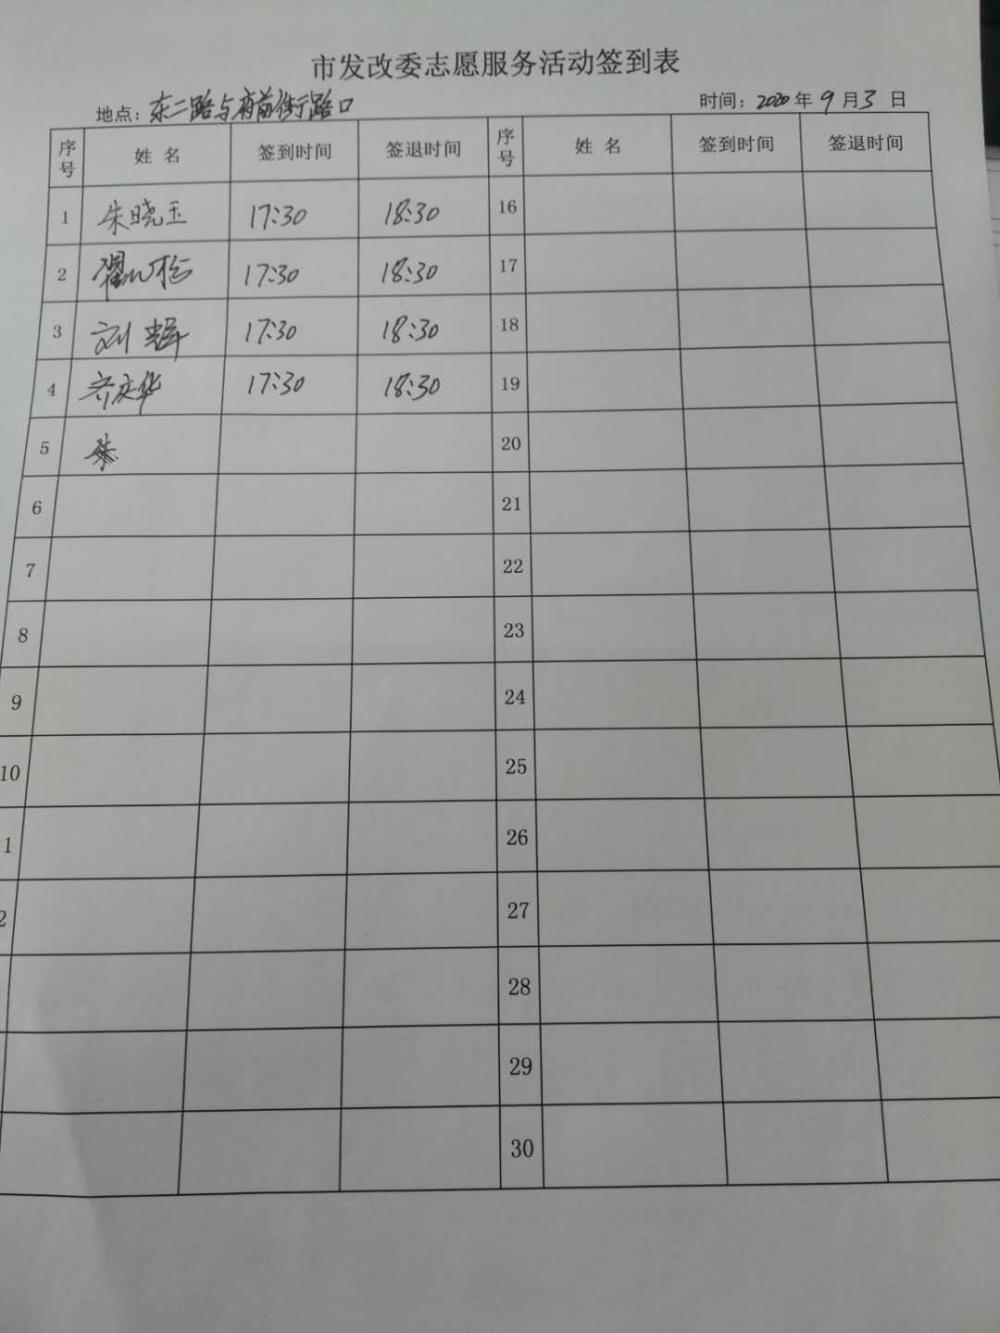 市发改委志愿服务活动签到表
地点：东二路与府前街路口 时间：2020年9月3日
序号 姓名 签到时间 签退时间 序号 姓名 签到时间 签退时间
1 朱晓玉 17:30 18:30 16
2 翟 17:30 18:30 17
3 刘辉 17:30 18:30 18
4 齐庆华 17:30 18:30 19
5 20
6 21
7 22
8 23
9 24
10 25
1 26
2 27
28
29
30